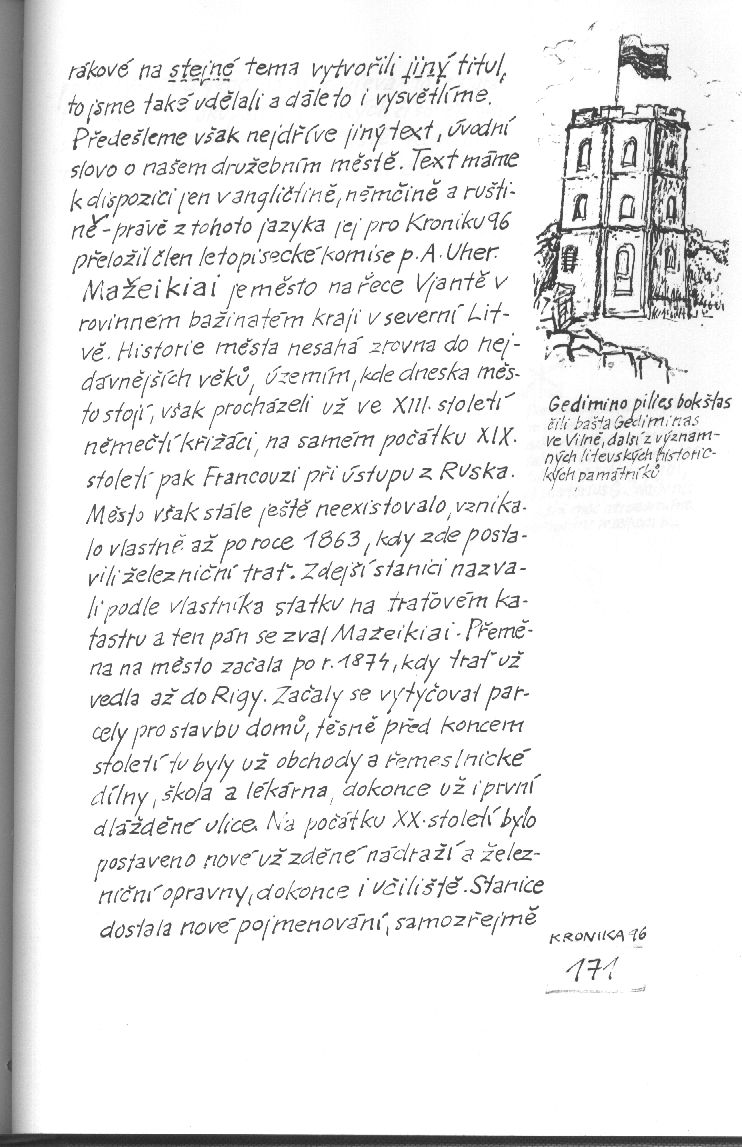 rákové na stejné tema vytvořili jiný titul,
to jsme také udělali a dáleto i vysvětlíme.
Předešleme však nejdříve jiný text, úvodní
slovo o našem družebním městě. Text máme
k dispozici jen v angličtině, němčině a rušti-
ně - právě z tohoto jazyka jej pro Kroniku 96
přeložil člen letopisecké komise p. A. Uher.
Mažeikiai je město na řece Vjantě v
rovinném bažinatém kraji v severní Lit-
vě. Historie města nesahá zrovna do nej-
dávnějších věků, územím, kde dneska měs-
to stojí, však procházeli už ve XIII. století
němečtí křižáci, na samém počátku XIX.
století pak Francouzi při ústupu z Ruska.
Město však stále ještě neexistovalo, vznika-
lo vlastně až po roce 1863, kdy zde posta-
vili železniční trať. Zdejší stanici nazva-
li podle vlastníka statku na traťovém ka-
tastru a ten pán se zval Mažeikiai. Přemě-
na na město začala po r. 1874, kdy trať už
vedla až do Rigy. Začaly se vytyčovat par-
cely pro stavbu domů, těsně před koncem
století tu byly už obchody a řemeslnické
dílny, škola a lékárna, dokonce už i první
dlážděné ulice. Na počátku XX. století bylo
postaveno nové už zděné nádraží a želez-
niční opravny, dokonce i učiliště. Stanice
dostala nové pojmenování, samozřejmě
Gedimino pilies bokštas
čili bašta Gediminas
ve Vilně, další z význam-
ných litevských historic-
kých památníků
KRONIKA 96
171